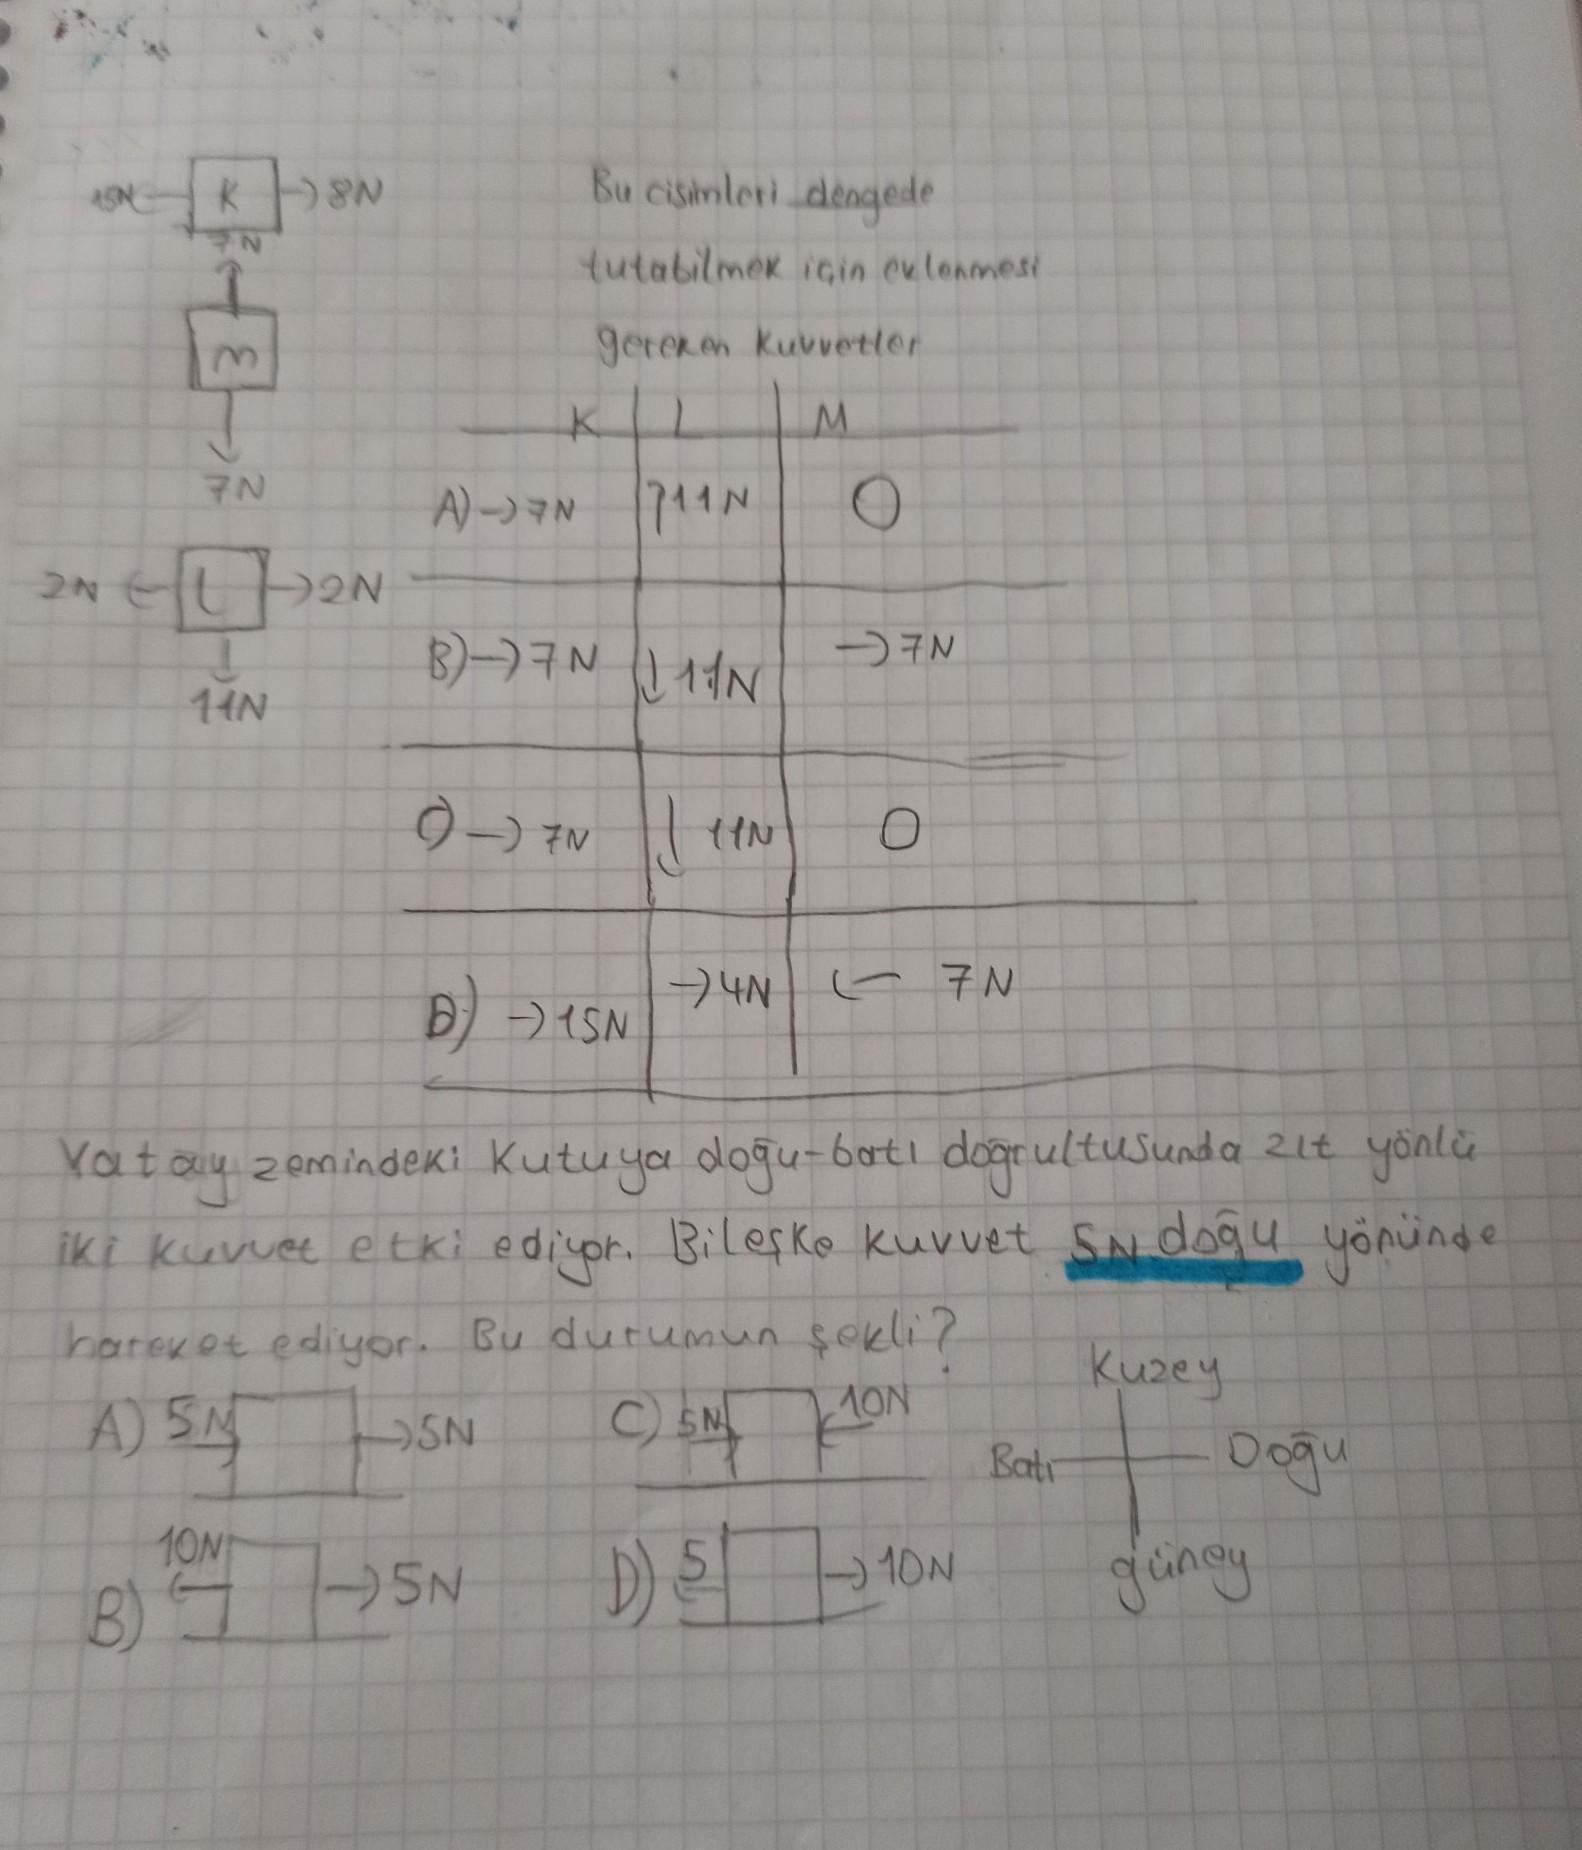 15N K →8N
Bu cisimleri dengede
7N
tutabilmek için eklenmesi
m
gereken kuvvetler
7N
K L M
A) →7N ↑11N O
2N ← L →2N
11N
B) →7N ↓11N →7N
C) →7N ↓11N O
D) →15N →4N ← 7N
Yatay zemindeki kutuya doğu-batı doğrultusunda zıt yönlü
iki kuvvet etki ediyor. Bileşke kuvvet 5N doğu yönünde
hareket ediyor. Bu durumun şekli?
A) 5N →5N
C) 5N 10N
B) 10N →5N
D) 5 →10N
Kuzey
Batı Doğu
güney